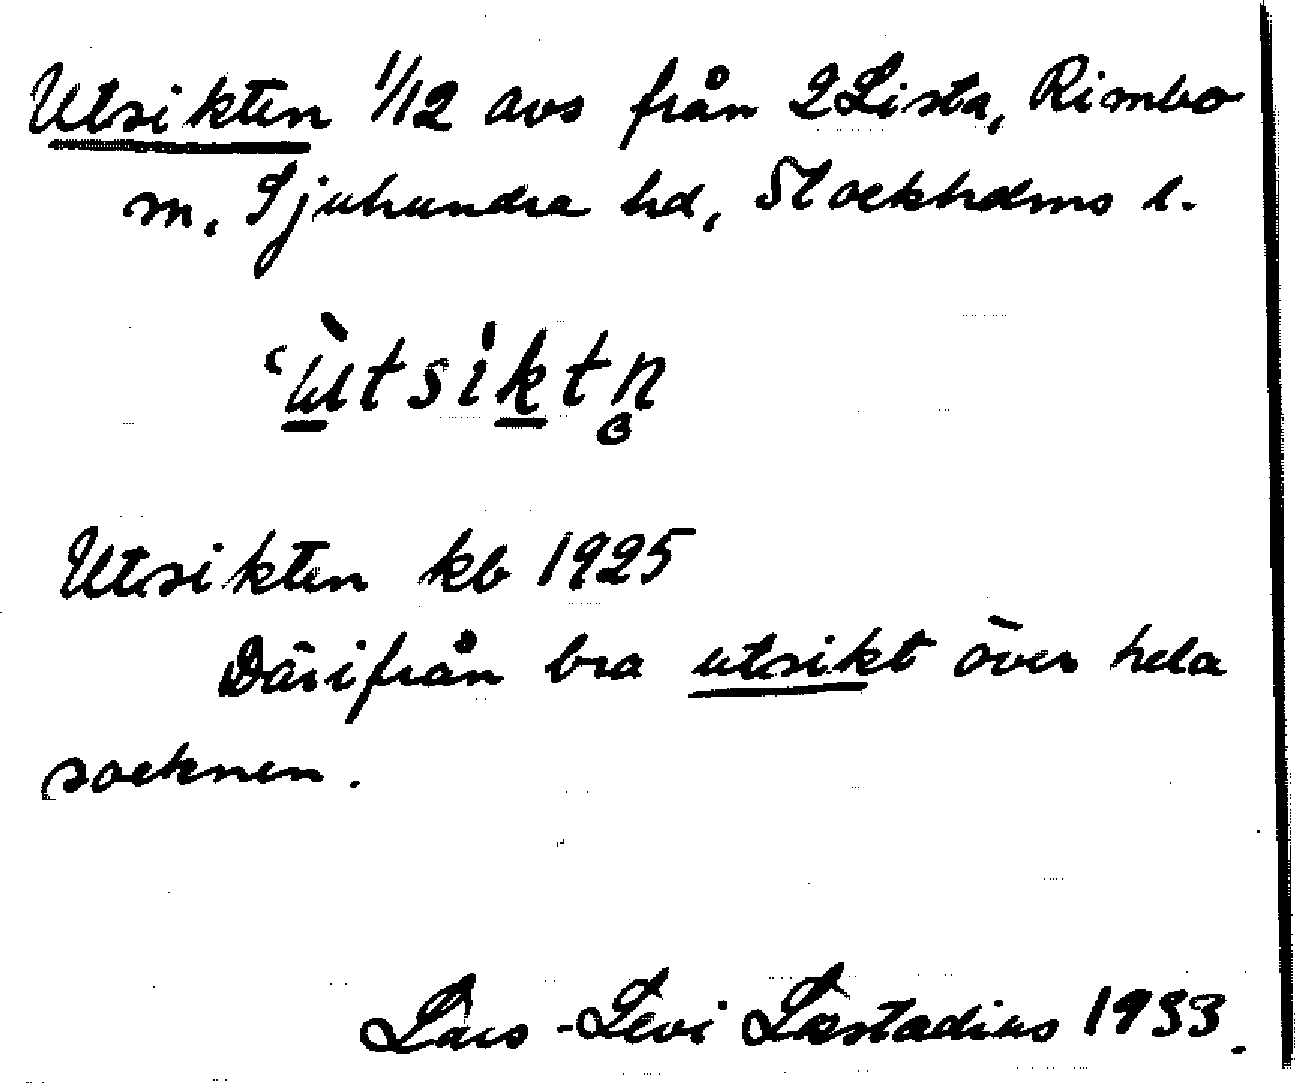 Utsikten 1/12 avs från 2 Lista, Rimbo
sn, Sjuhundra hd, Stockholms l.
‘ùtsiktn̥
Utsikten kb 1925
Därifrån bra utsikt över hela
socknen.
Lars-Levi Læstadius 1933.